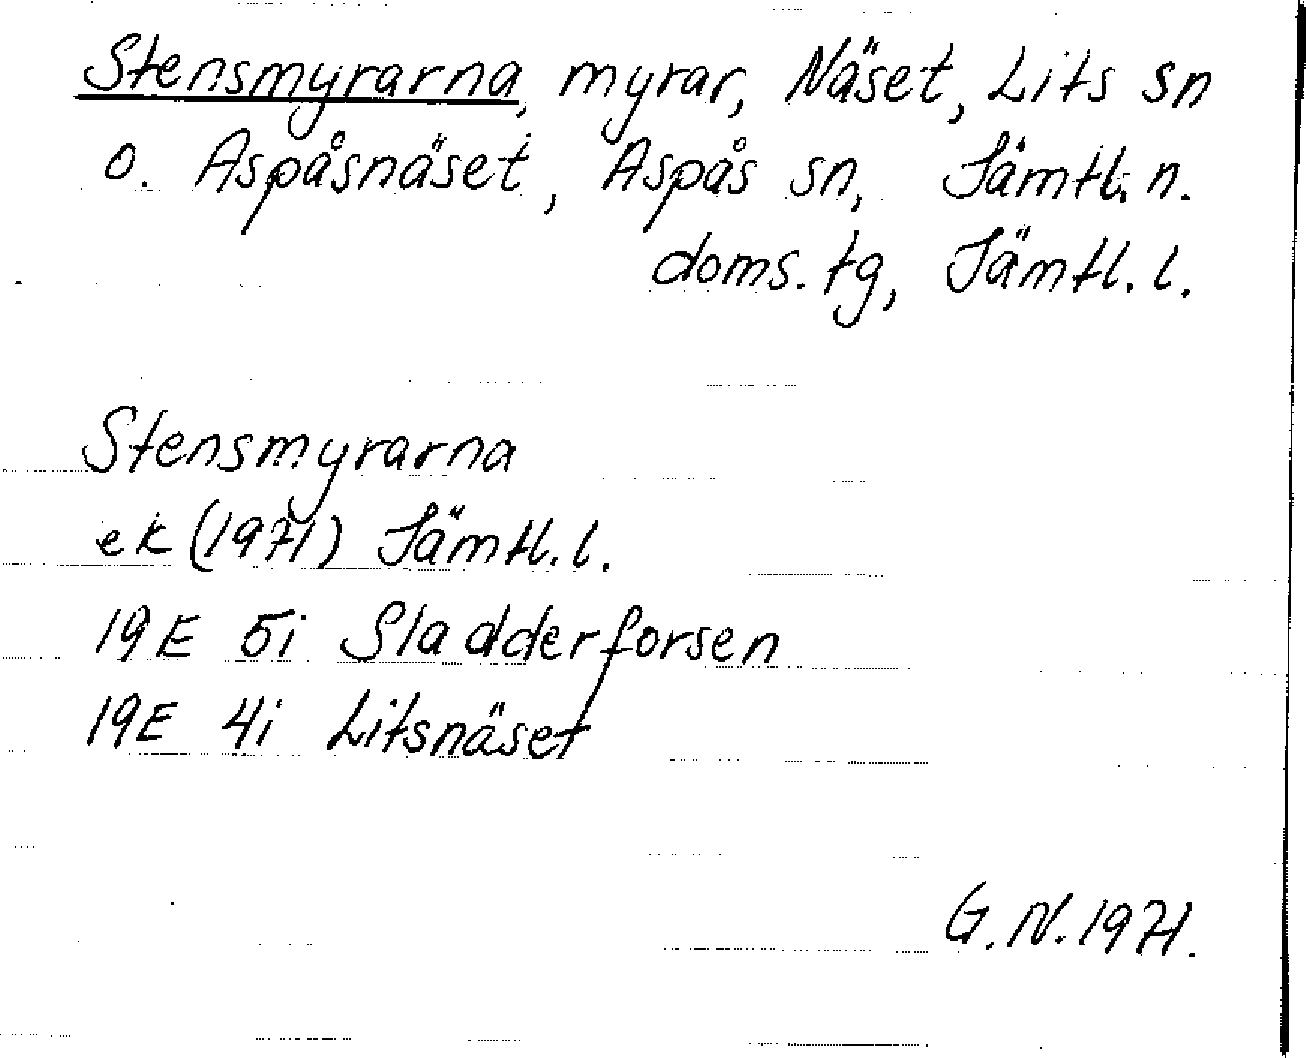 Stensmyrarna, myrar, Näset, Lits sn
o. Aspåsnäset, Aspås sn, Jämtl. n.
doms. tg, Jämtl. l.
Stensmyrarna
ek (1971) Jämtl. l.
19E 5i Sladderforsen
19E 4i Litsnäset
G. N. 1971.